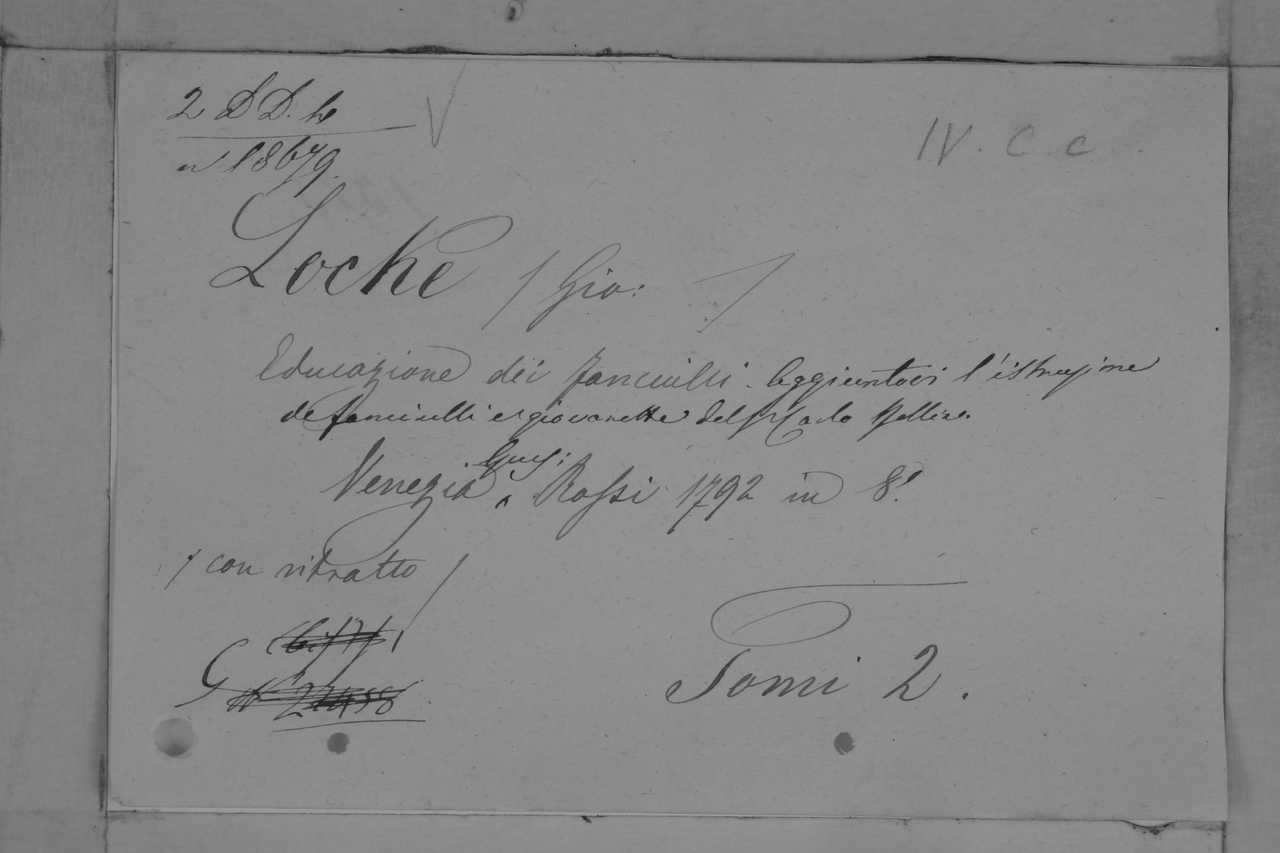 2 D D. he
n 18679.
IV. C. c
Locke / Gio: /
Educazione dei fanciulli. Aggiuntovi l'istruzione
de fanciulli e giovanette del Carlo
Venezia Gius: Rossi 1792 in 8°.
/ con ritratto /
Tomi 2.